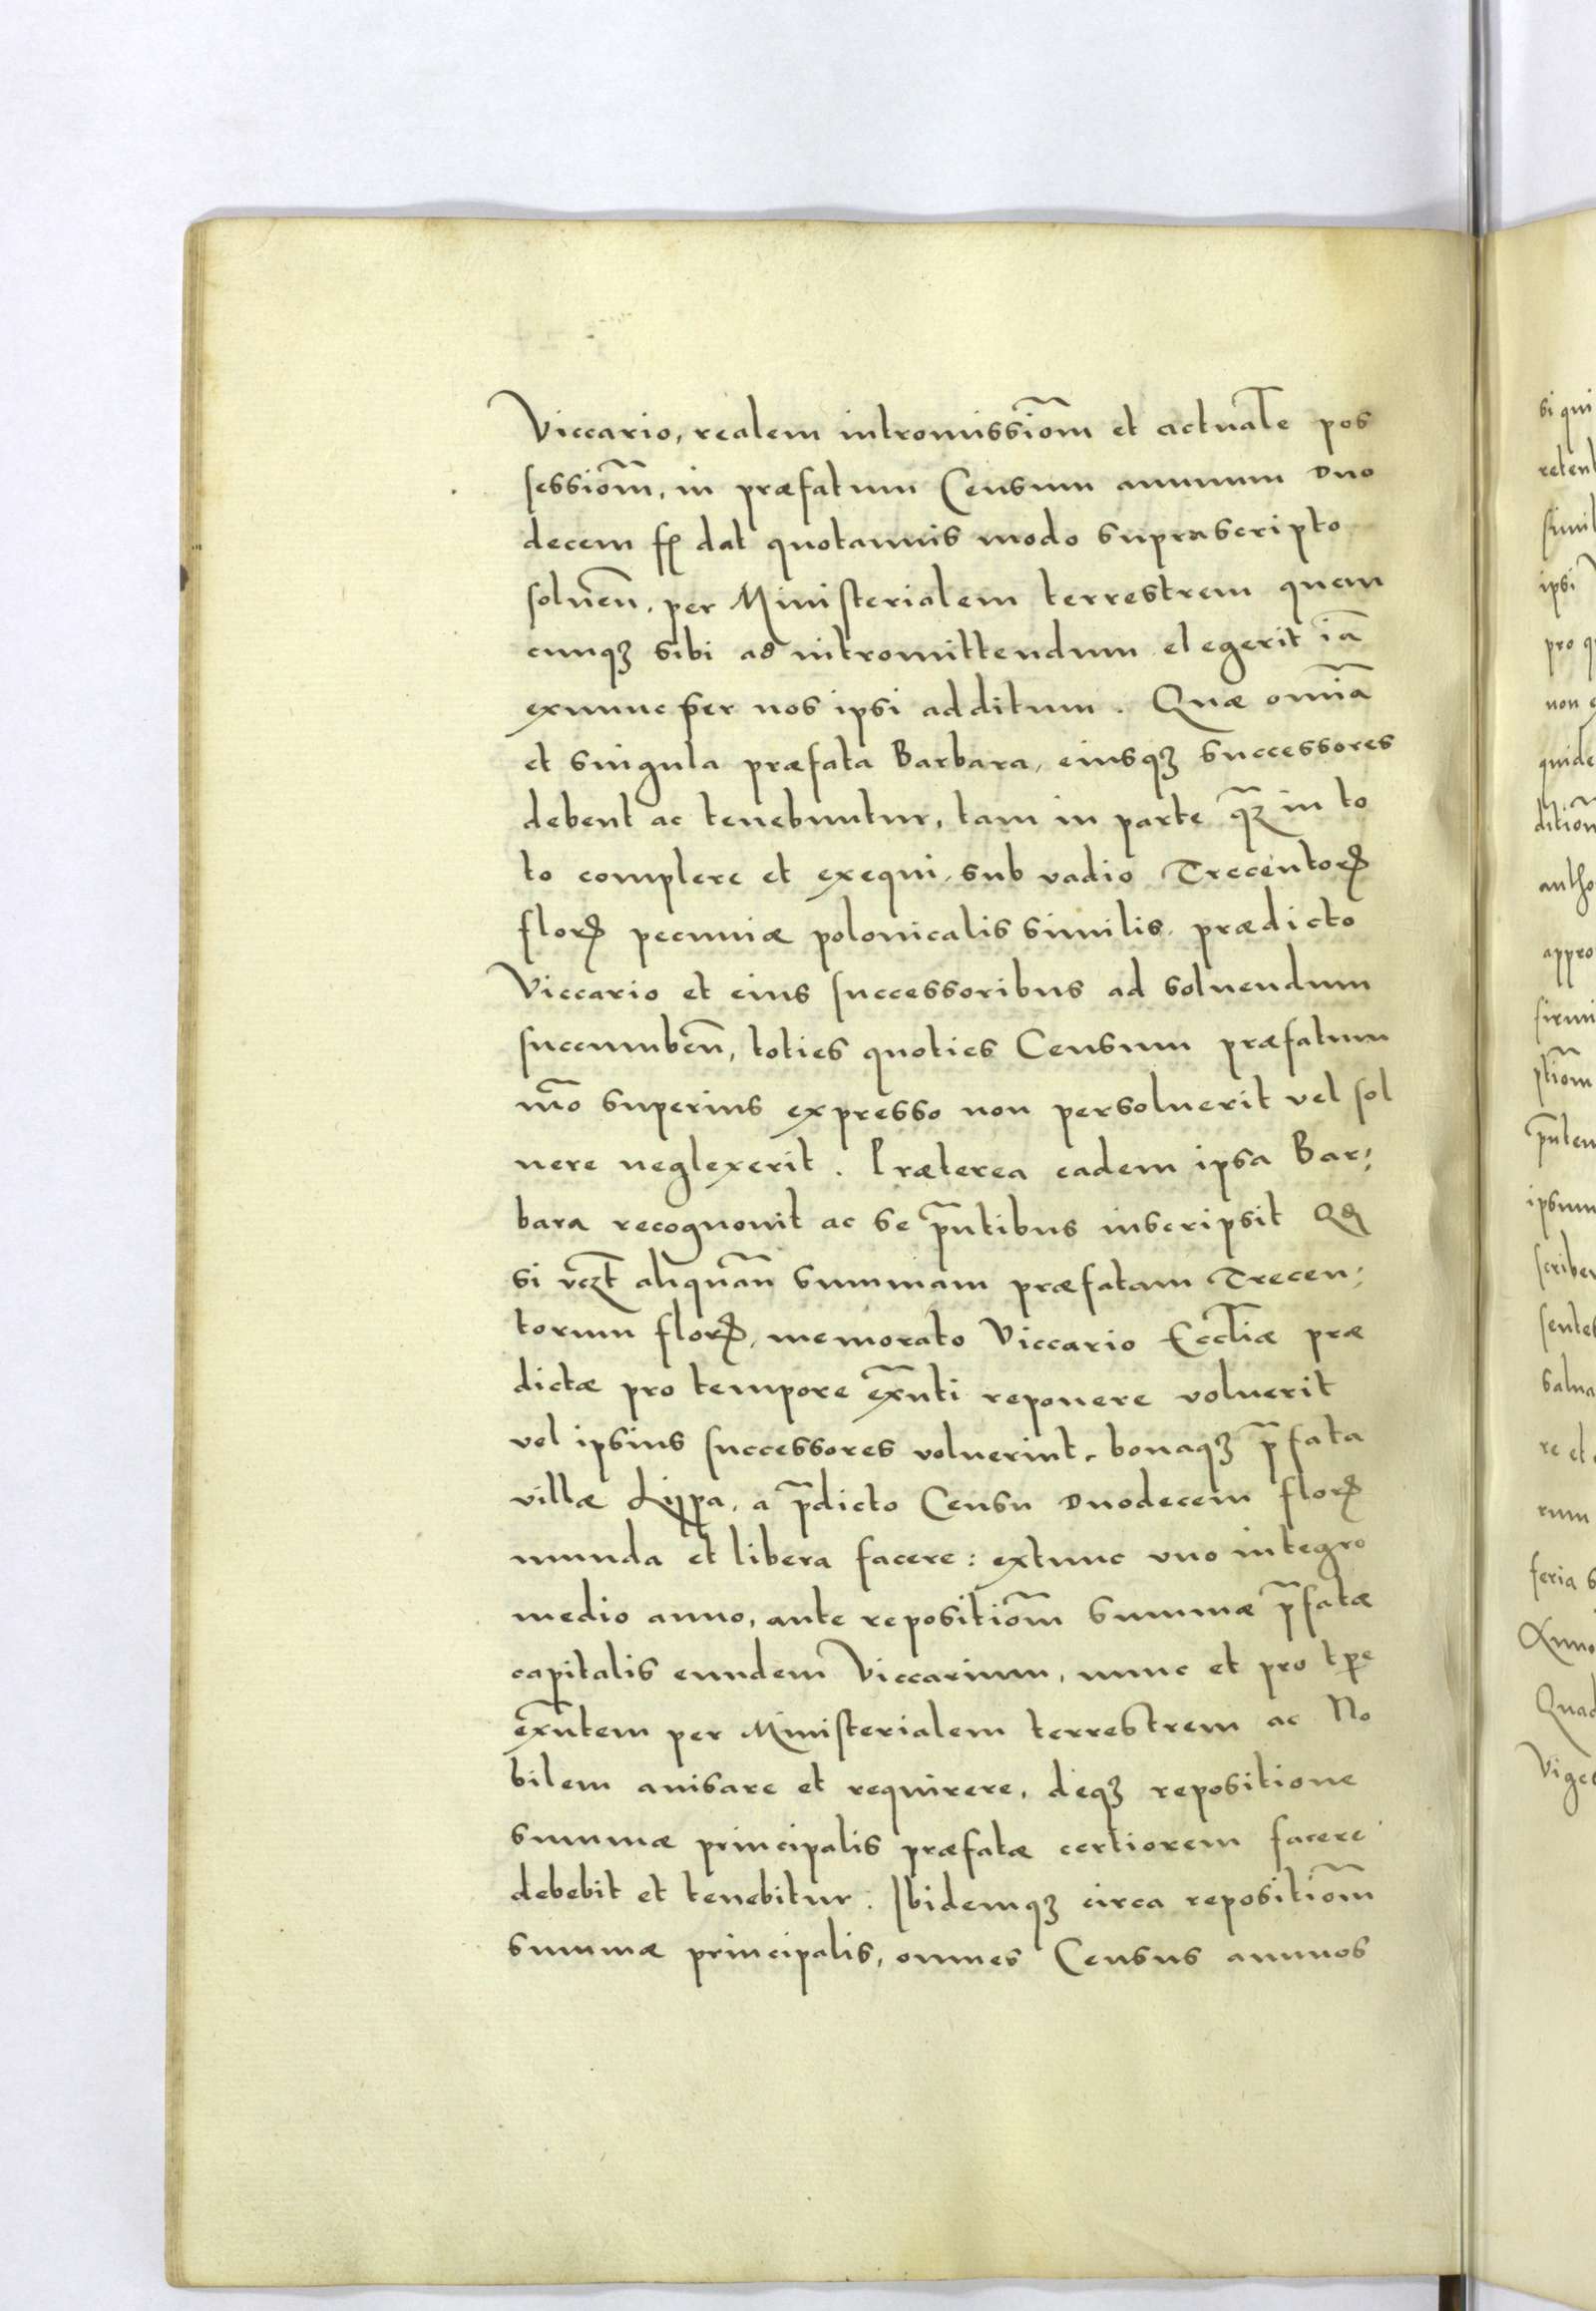 Viccario, realem intromissio͞m et actuale͞ pos
sessio͞m, in præfatum Censum annuum duo
decem fl dat quotannis modo suprascripto
soluen͞, per Ministerialem terrestrem quem
cunqꝫ sibi ad intromittendum elegerit ia͞
exnunc per nos ipsi additum. Quæ omi͞a
et singula præfata Barbara, eiusqꝫ successores
debent ac tenebuntur, tam in parte qꝫ͞ in to
to complere et exequi, sub vadio Trecentoꝝ
floꝝ pecuniæ polonicalis similis, prædicto
Viccario et eius successoribus ad soluendum
succumben͞, toties quoties Censum præfatum
mo͞ superius expresso non persoluerit vel sol
uere neglexerit. Præterea eadem ipsa Bar:
bara recognouit ac se pn͞tibus inscripsit Qđ
si vꝫt͞ aliquan͞ summam præfatam Trecen:
torum floꝝ, memorato Viccario Eccl͞iæ præ
dictæ pro tempore exn͞ti reponere voluerit
vel ipsius successores voluerint, bonaqꝫ p͞fata
villæ Lippa, a p͞dicto Censu duodecem floꝝ
munda et libera facere: extunc vno integro
medio anno, ante repositio͞m summæ p͞fatæ
capitalis eundem Viccarium, nunc et pro tp͞e
exn͞tem per Ministerialem terrestrem ac No
bilem auisare et requirere, deqꝫ repositione
summæ principalis præfatæ certiorem facere
debebit et tenebitur: Ibidemqꝫ circa repositio͞m
summæ principalis, omnes Census annuos
si qui
retent
simil
ipsi
pro q
non
quide
ditio͞n
autho
appro
firmi
ptio͞m
pn͞ten
ipsum
scriben
sentes
salua
re et
rum
feria s
Anno
Quad
Viges